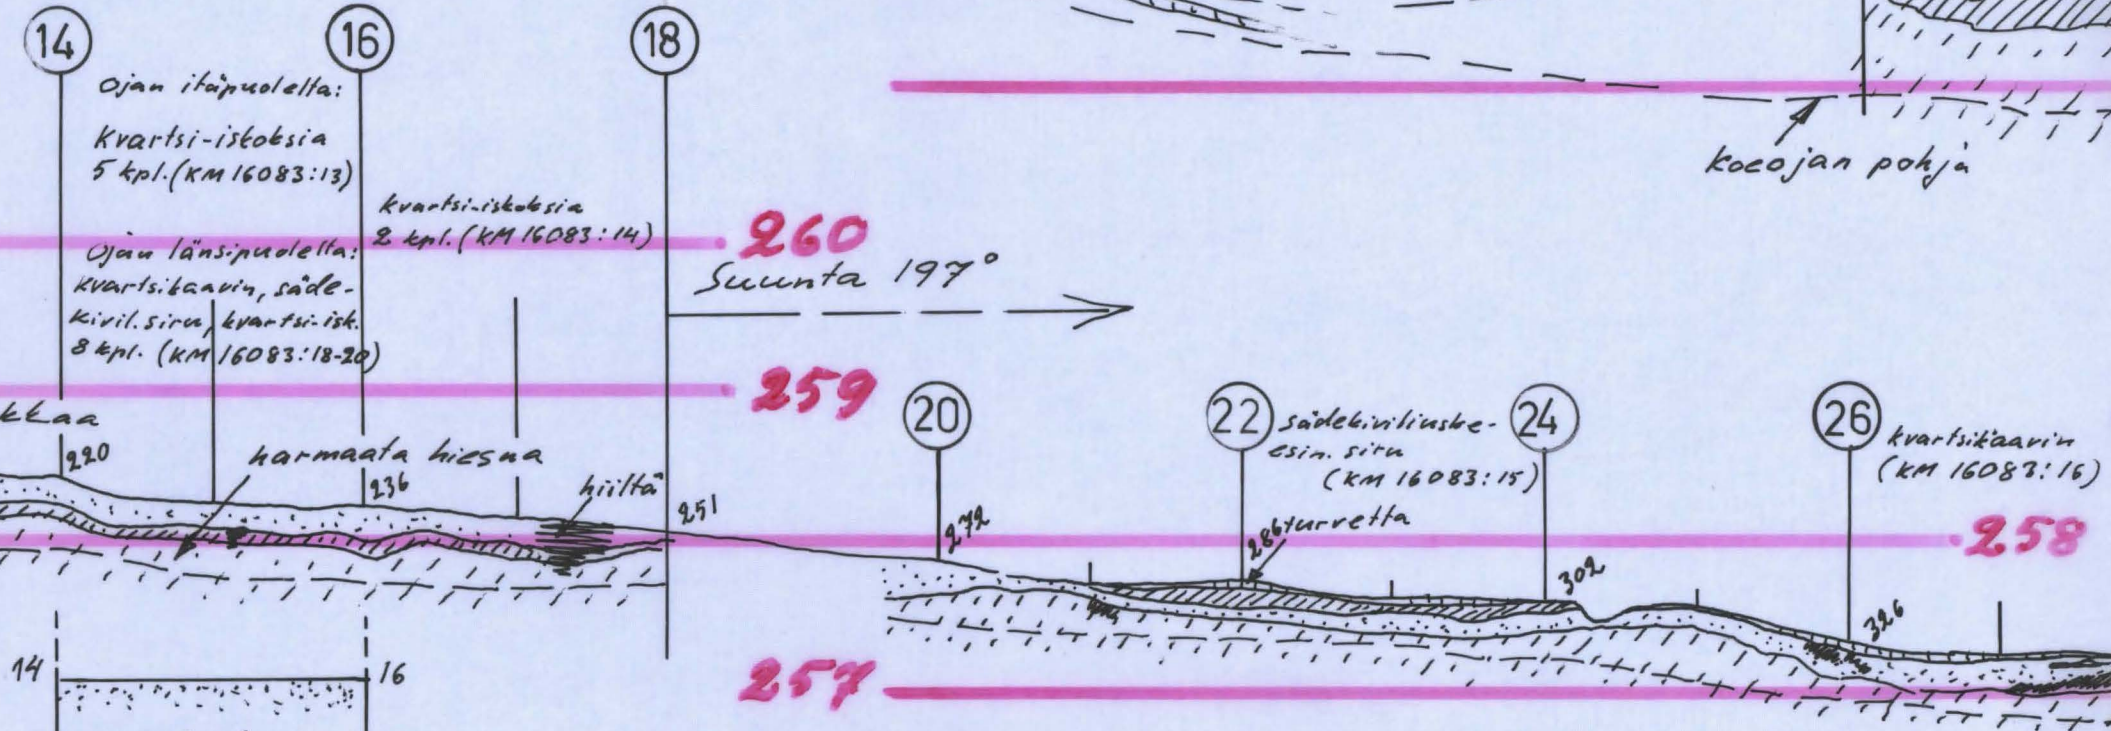 14
16
18
Ojan itäpuolelta:
Kvartsi-iskoksia
5 kpl. (KM 16083:13)
kvartsi-iskoksia
2 kpl. (KM 16083:14)
Ojan länsipuolelta:
Kvartsikaavin, säde-
kivil. siru, kvartsi-isk.
8 kpl. (KM 16083:18-20)
260
Suunta 197°
259
koeojan pohja
kkaa
220
harmaata hiesua
236
hiiltä
251
20
22
24
26
sädekiviliuske-
esin. siru
(KM 16083:15)
kvartsikaavin
(KM 16083:16)
272
286
turvetta
302
326
258
257
14
16